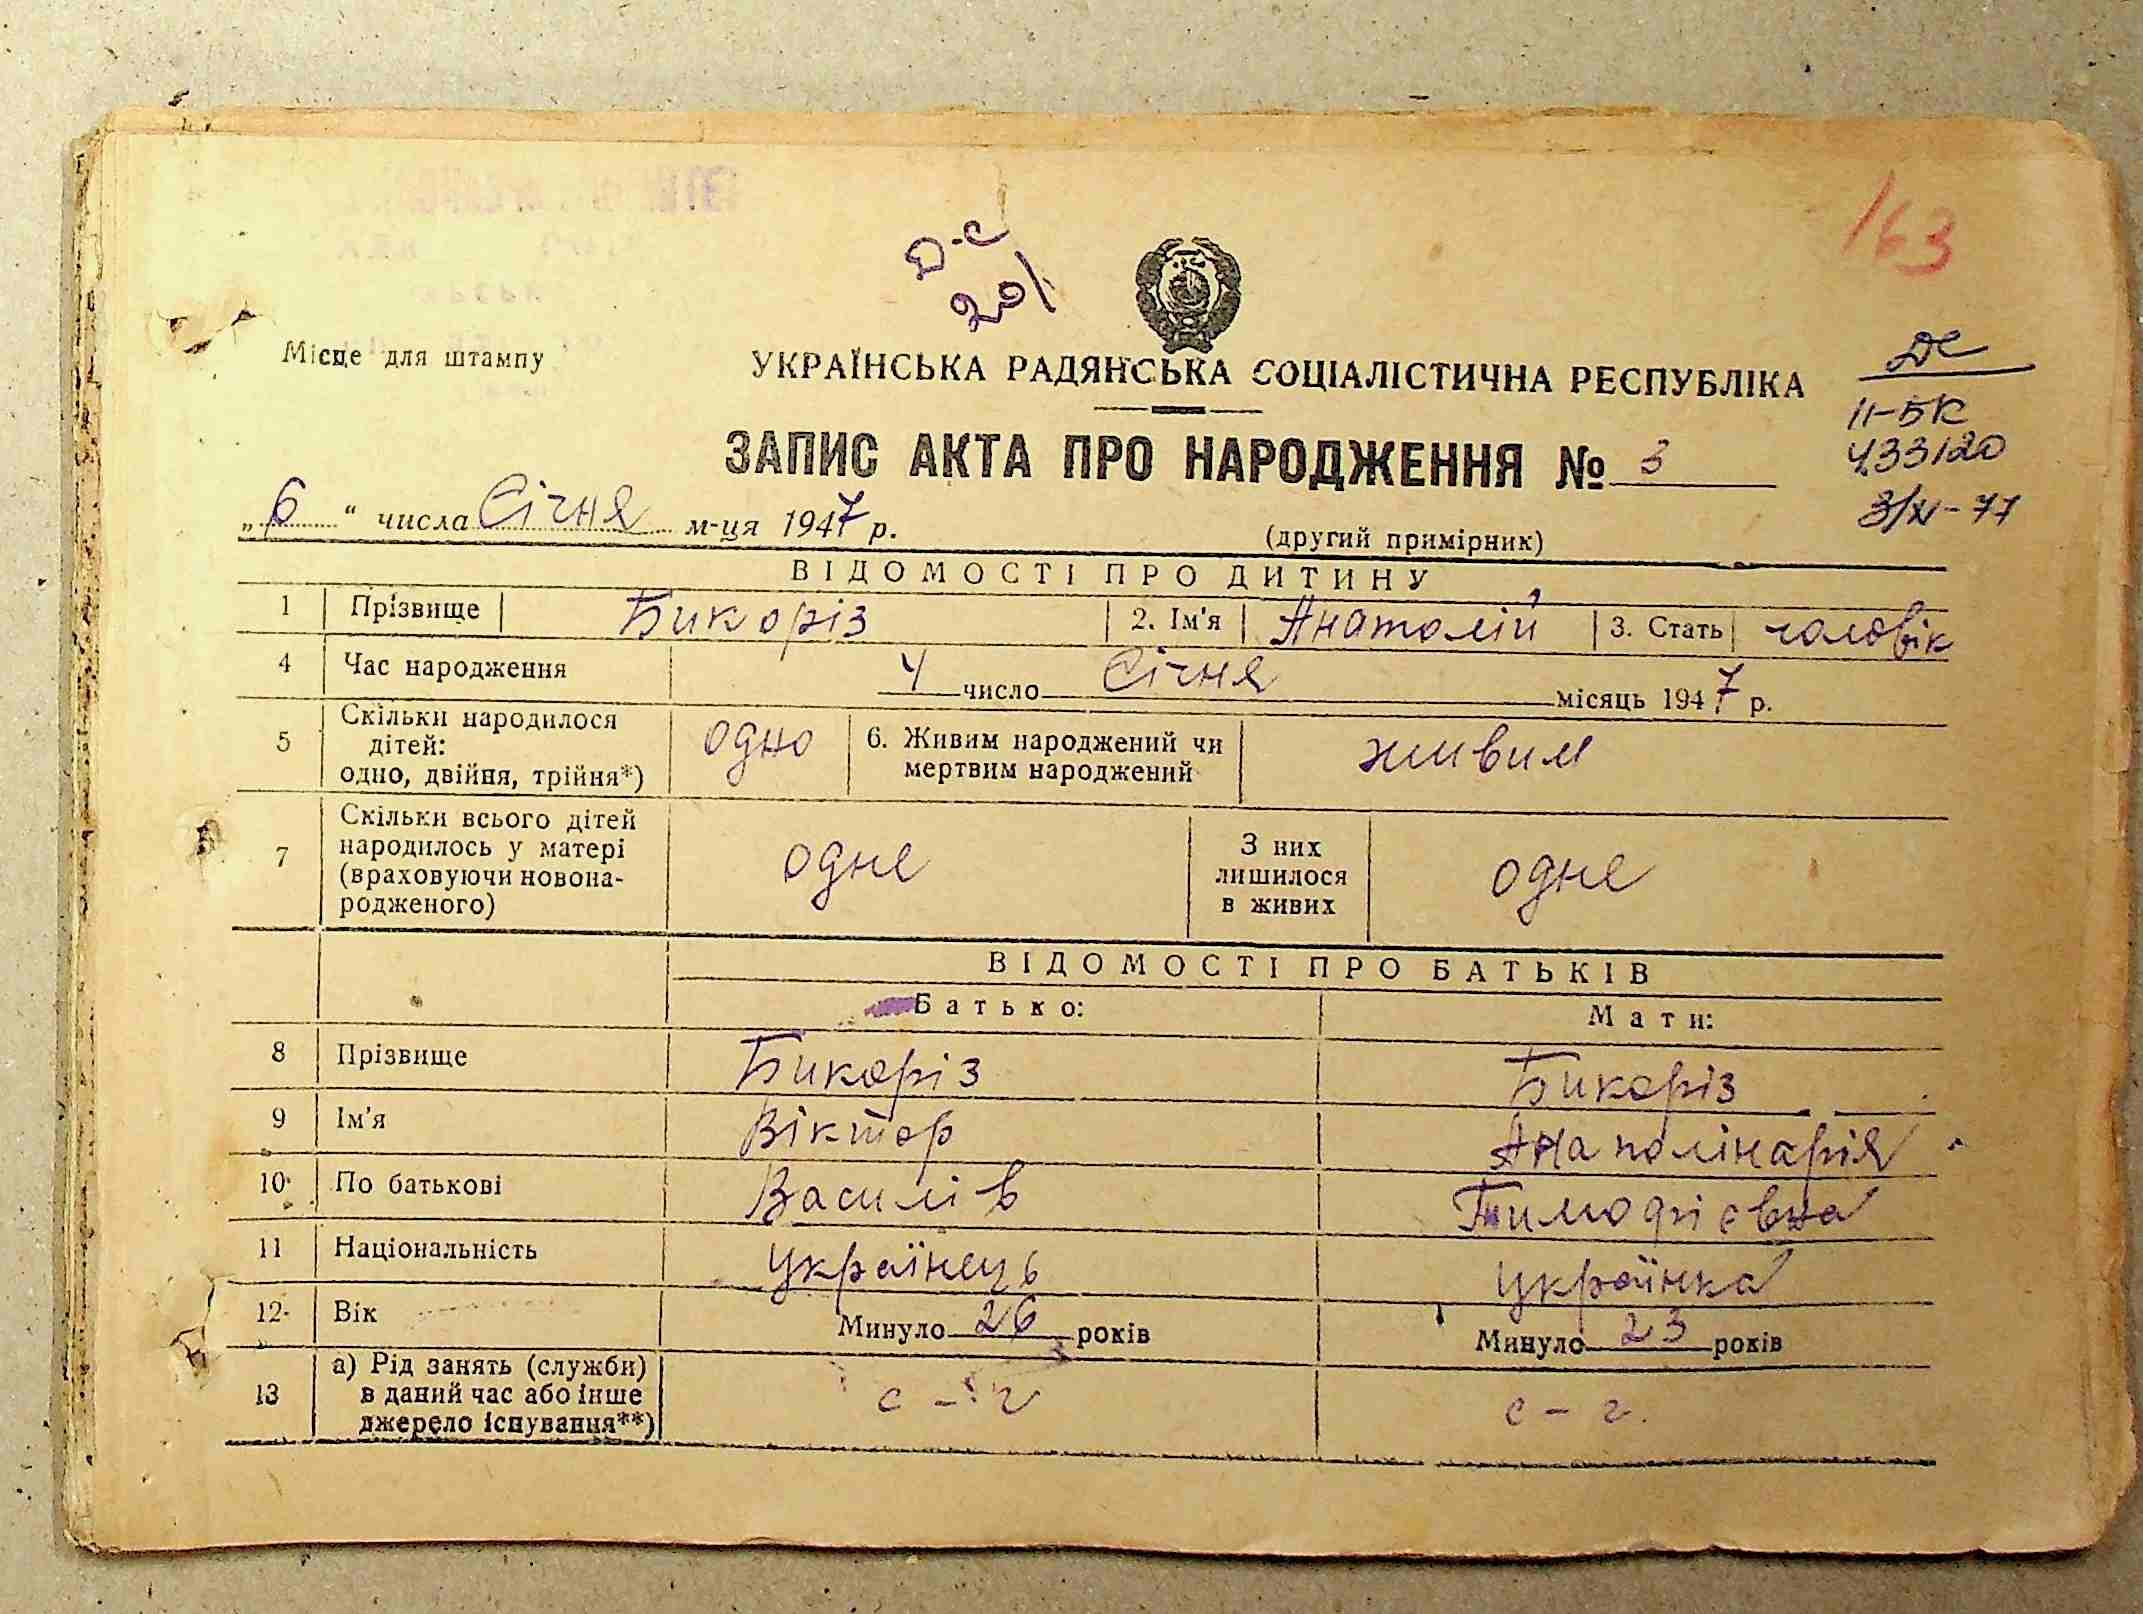 163
Д-С
201
Місце для штампу
УКРАЇНСЬКА РАДЯНСЬКА СОЦІАЛІСТИЧНА РЕСПУБЛІКА
ДС
ІІ-БК
433120
3/XI-77
ЗАПИС АКТА ПРО НАРОДЖЕННЯ № 3
„6“ числа Січня м-ця 1947 р.
(другий примірник)
ВІДОМОСТІ ПРО ДИТИНУ
1 Прізвище Бикоріз 2. Ім'я Анатолій 3. Стать чоловік
4 Час народження 4 число Січня місяць 1947 р.
5 Скільки народилося дітей: одно, двійня, трійня*) одно 6. Живим народжений чи мертвим народжений живим
7 Скільки всього дітей народилось у матері (враховуючи новонародженого) одне З них лишилося в живих одне
ВІДОМОСТІ ПРО БАТЬКІВ
Батько: Мати:
8 Прізвище Бикоріз Бикоріз
9 Ім'я Віктор Анаполінарія
10 По батькові Василів Тимофієвна
11 Національність українець українка
12 Вік Минуло 26 років Минуло 23 років
13 а) Рід занять (служби) в даний час або інше джерело існування**) с-г с-г.